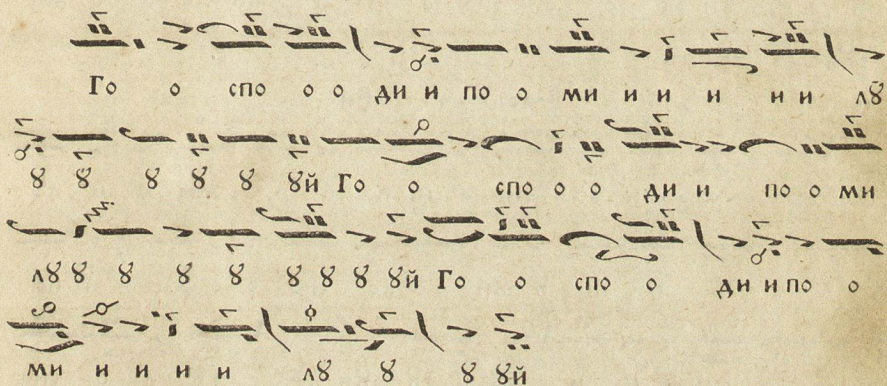 Го о спо о о ди и по о ми и и и и и лꙋ
ꙋ ꙋ ꙋ ꙋ ꙋ ꙋй Го о спо о о ди и по о ми
лꙋ ꙋ ꙋ ꙋ ꙋ ꙋ ꙋ ꙋ ꙋй Го о спо о ди и по о
ми и и и и лꙋ ꙋ ꙋ ꙋй